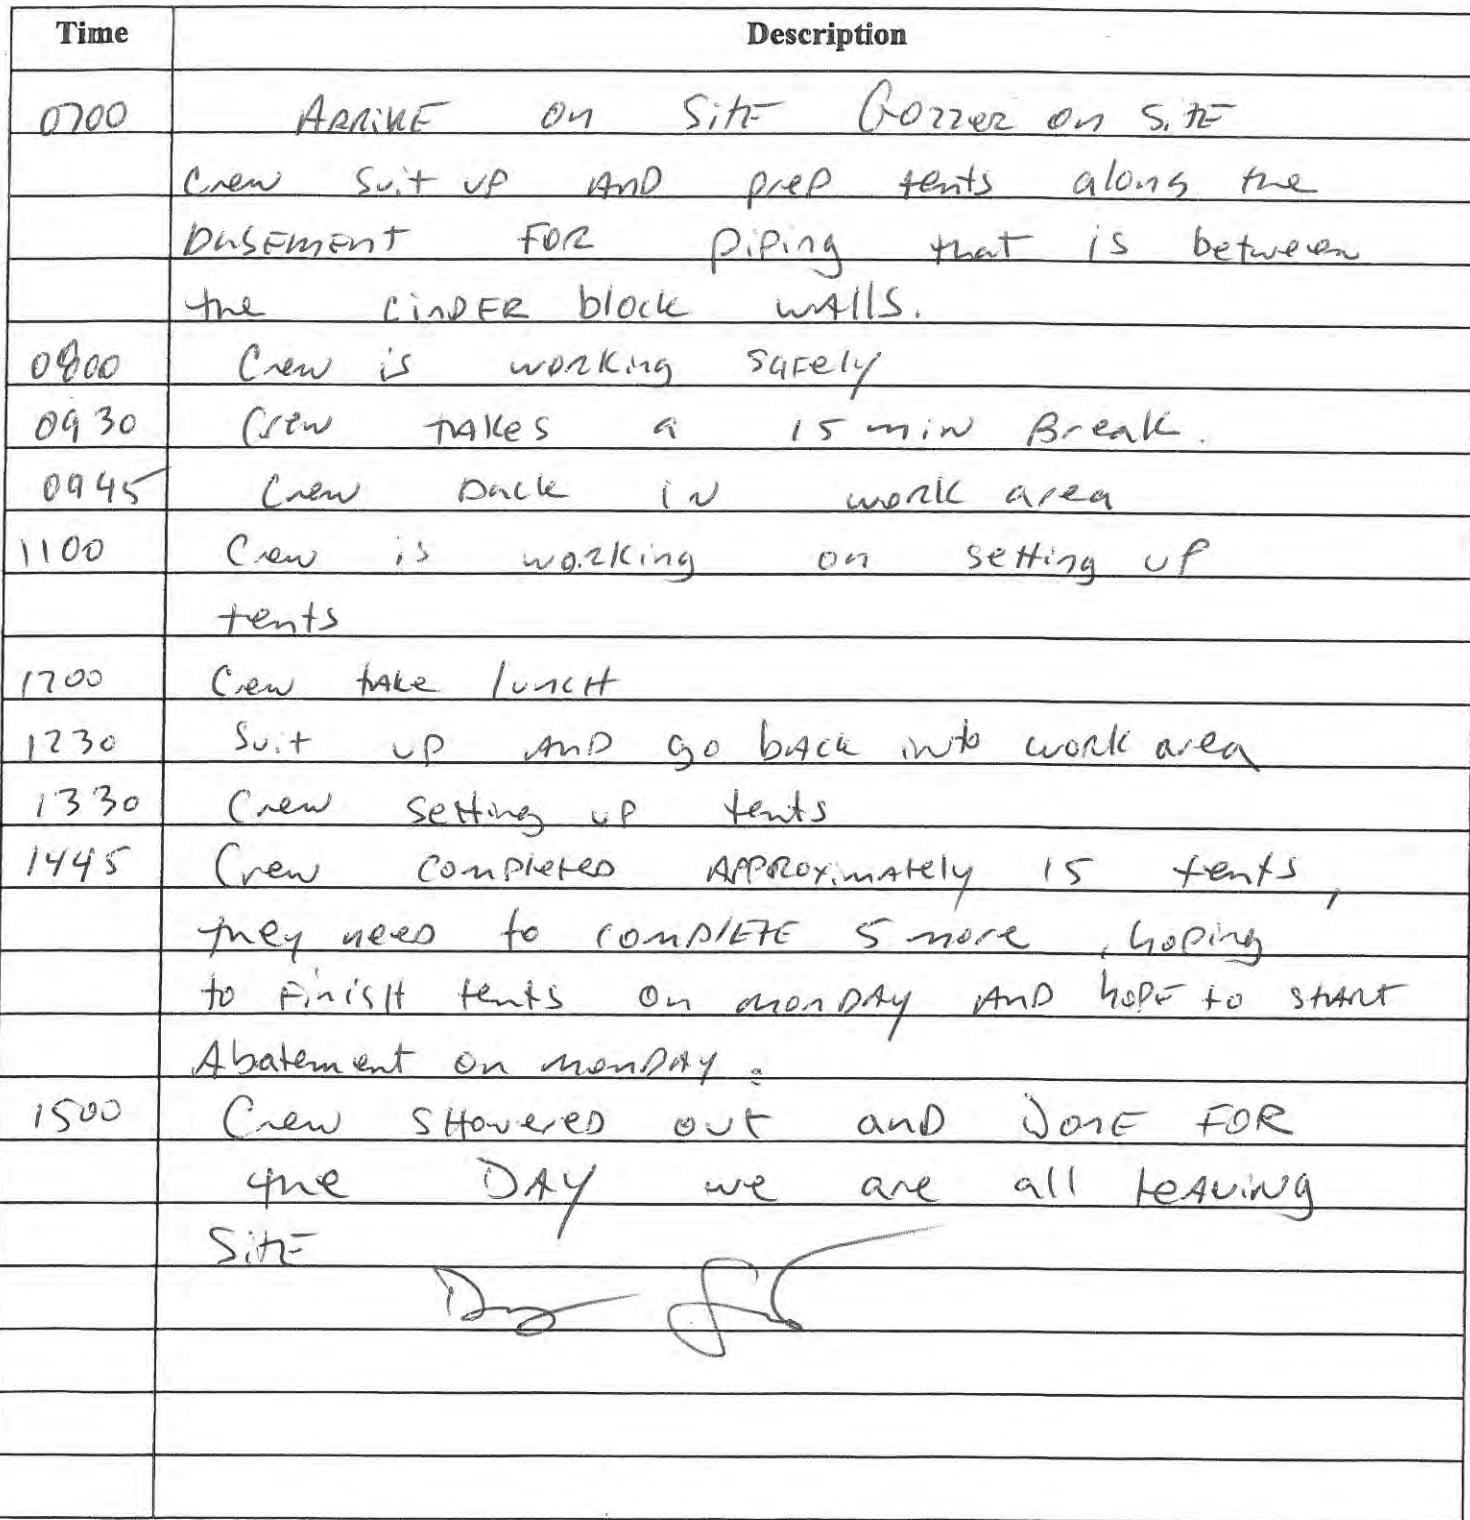 Time Description
0700 ARRIVE on SitE Gozzer on SitE
Crew Suit up AND prep tents along the
basEmEnt FOR piping that is between
the CinDER block wAlls.
0800 Crew is working safely
0930 Crew takes a 15 min Break.
0945 Crew back in work area
1100 Crew is working on setting up
tents
1200 Crew take luncH
1230 Suit up AnD go bAck into work area
1330 Crew setting up tents
1445 Crew completeD APPRoximAtely 15 tents,
they neeD to complETE 5 more, hoping
to FinisH tents On monDAy AnD hopE to stARt
Abatement on monDAy.
1500 Crew SHowereD out anD DonE FOR
the DAY we are all leAving
SitE